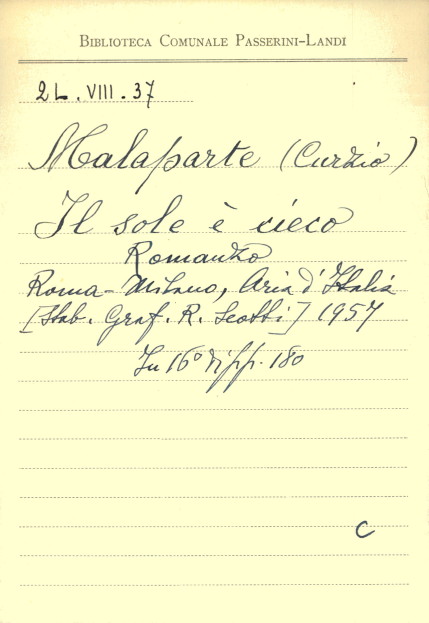 BIBLIOTECA COMUNALE PASSERINI-LANDI
2L.VIII.37
Malaparte (Curzio)
Il sole è cieco
Romanzo
Roma-Milano, Aria d'Italia
[Stab. Graf. R. Scotti] 1957
In 16° di pp. 180
C